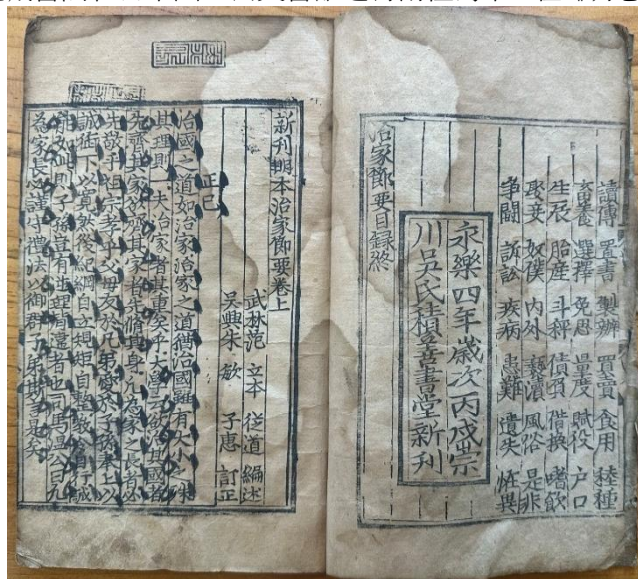 讀傳 置書 製辦 買賣 食用 種
畜養 選擇 免恩 量度 賦役 户口
生辰 胎產 斗秤 債負 借換 嗜飲
娶妾 奴僕 內外 褻瀆 風俗 是非
爭鬭 訴訟 疾病 患難 遺失 怪異
永樂四年歲次丙戌崇
川吳氏積善書堂新刊
治家節要目錄終
新刊明本治家節要卷上
武林范 立本 從道 編述
吳興朱 敏 子惠 訂正
正己
治國之道如治家治家之道猶治國雖有大小之殊
其理則一夫治家者其重矣乎大學曰欲治其國者
先齊其家欲齊其家者先脩其身凡為家之長者必
先敬于祖宗孝乎父母友於兄弟慈於子孫奉上以
誠御下以寬然後紀綱自立規矩自整教令自行誠
能如此則子孫豈有失理間違者也司馬溫公曰凡
為家長必謹守禮法以御群子弟